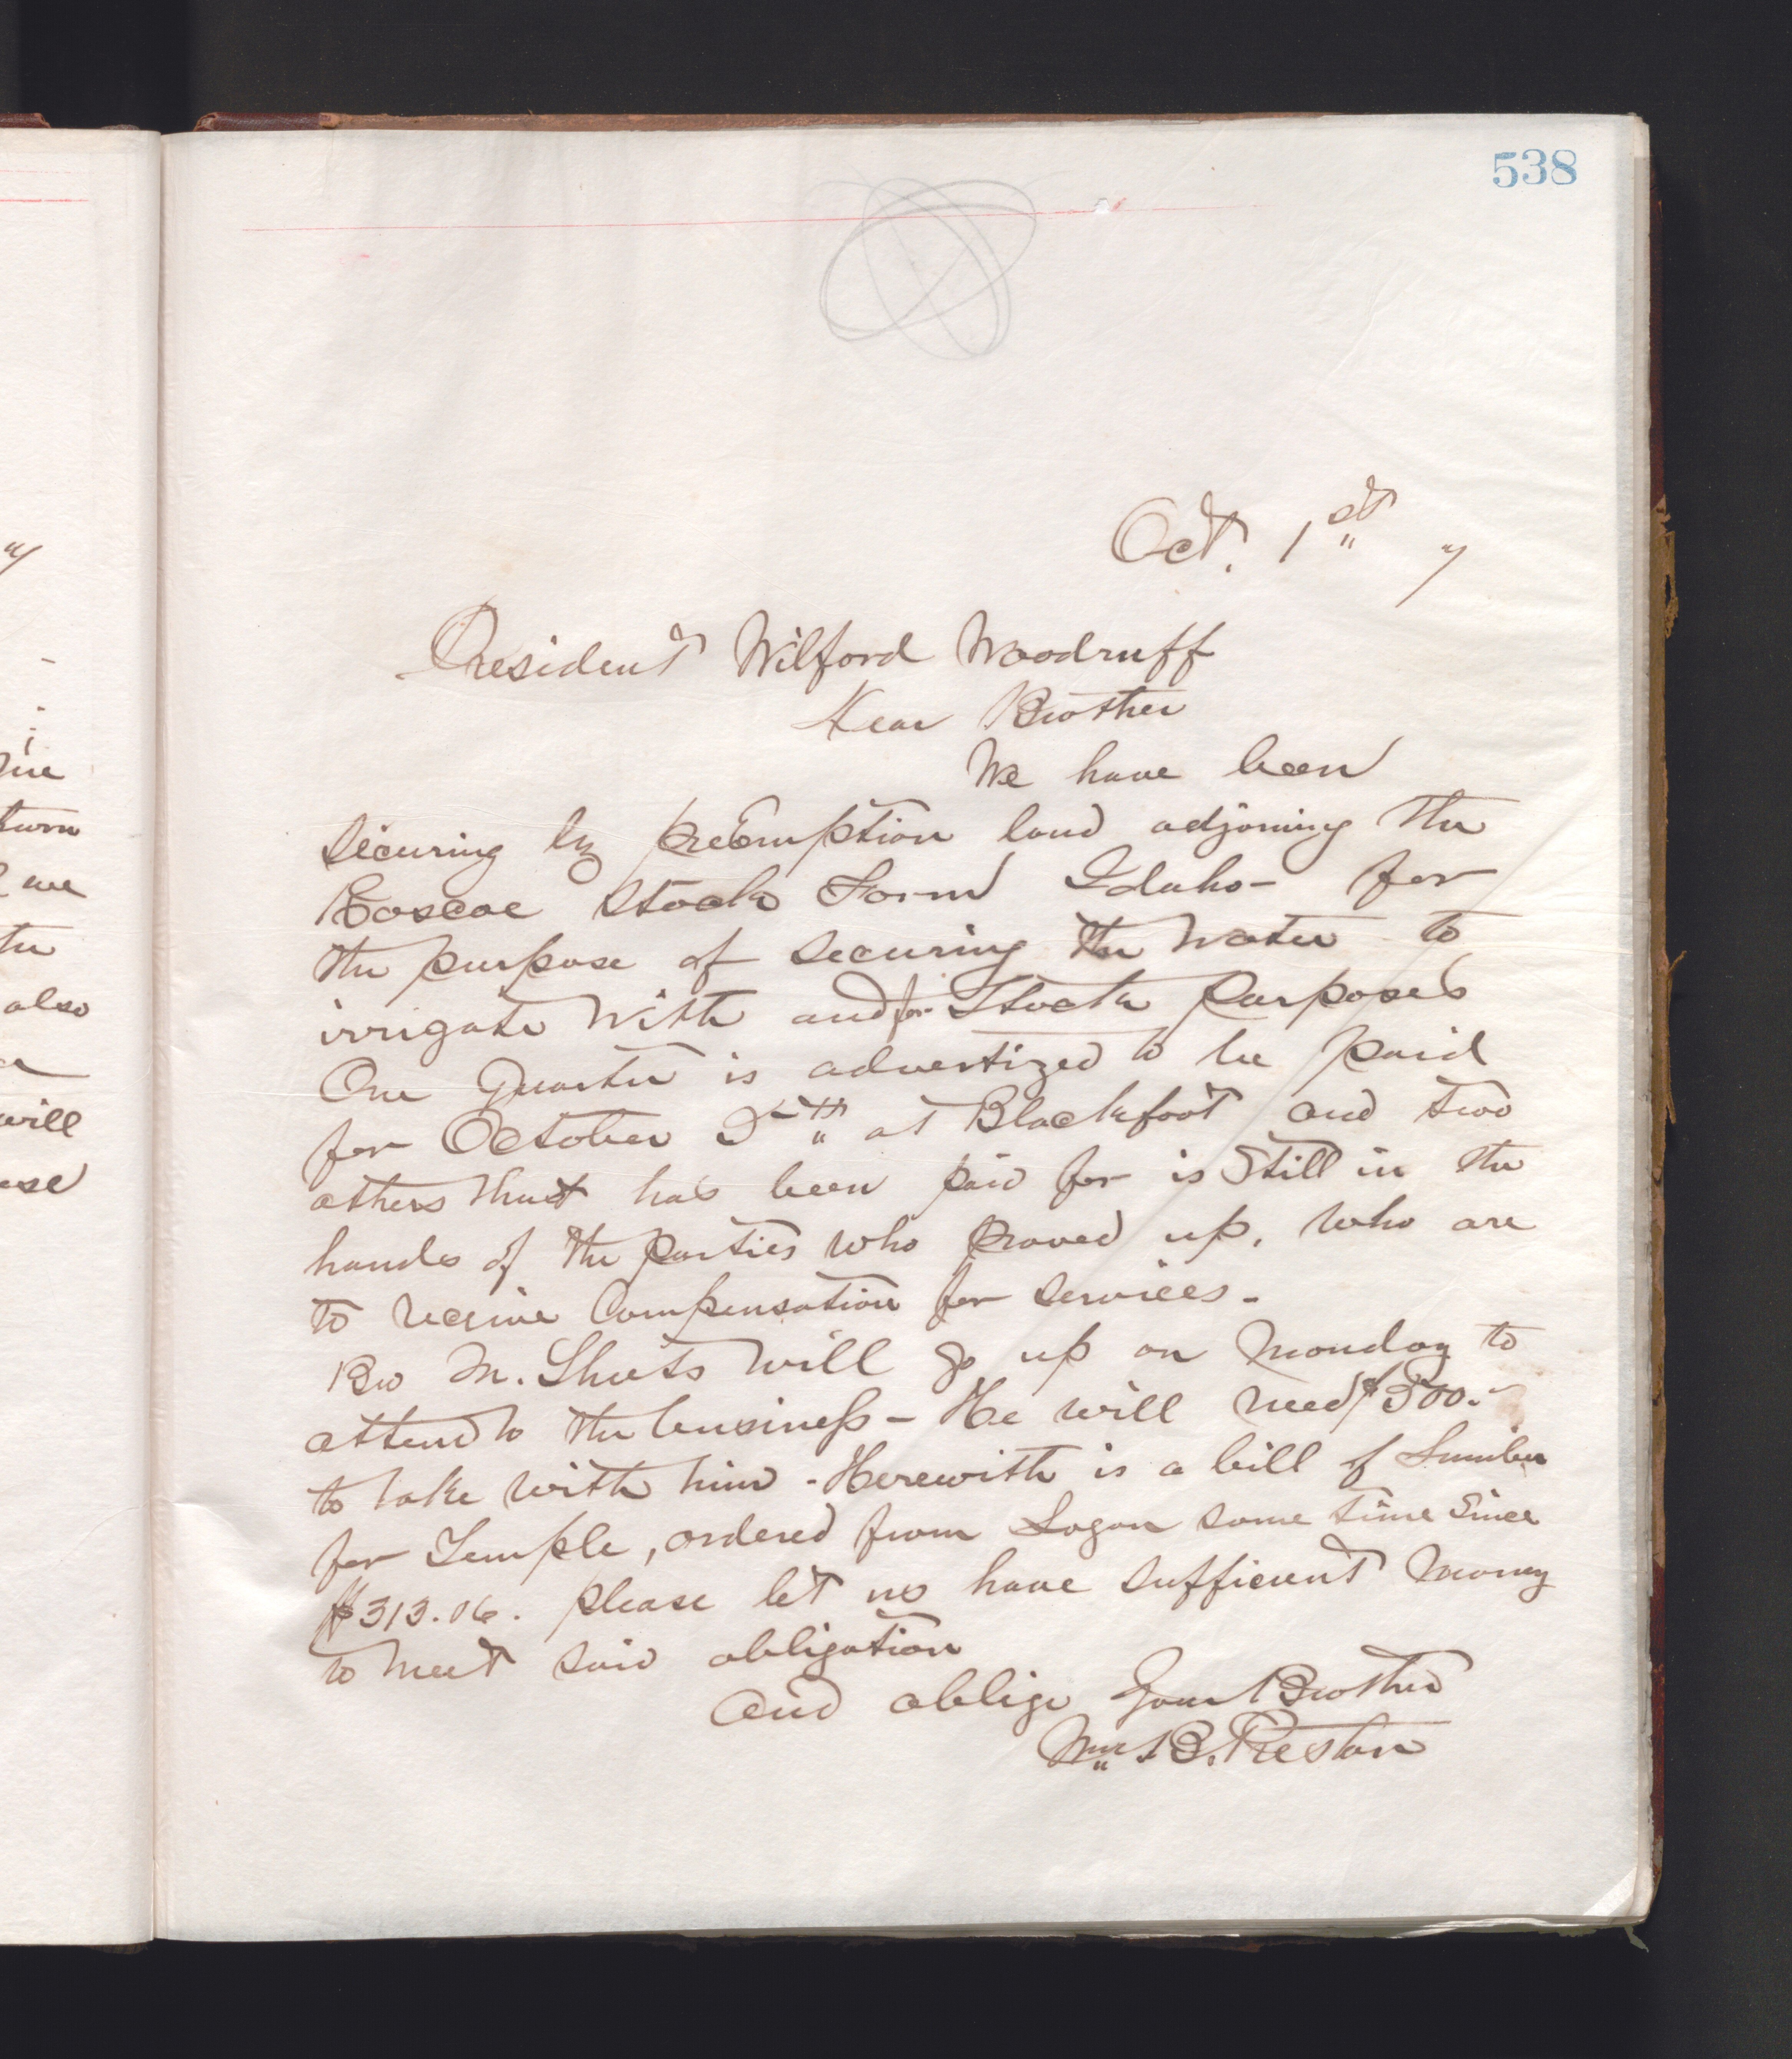 538
Oct. 1st "7
President Wilford Woodruff
Dear Brother
We have been
securing by preemption land adjoining the
Roscoe Stock Farm Idaho - for
the purpose of securing the water to
irrigate with and for Stock Purposes
One Quarter is advertized to be paid
for October 5th at Blackfoot and two
others that has been paid for is still in the
hands of the parties who proved up, who are
to receive Compensation for services -
Bro M. Sheets will go up on Monday to
attend to the business - He will need $300.-
to take with him - Herewith is a bill of Lumber
for Temple, ordered from Logan some time since
$313.06. please let us have sufficient money
to meet said obligation
and oblige Your Brother
Wm B. Preston
turn
also
will